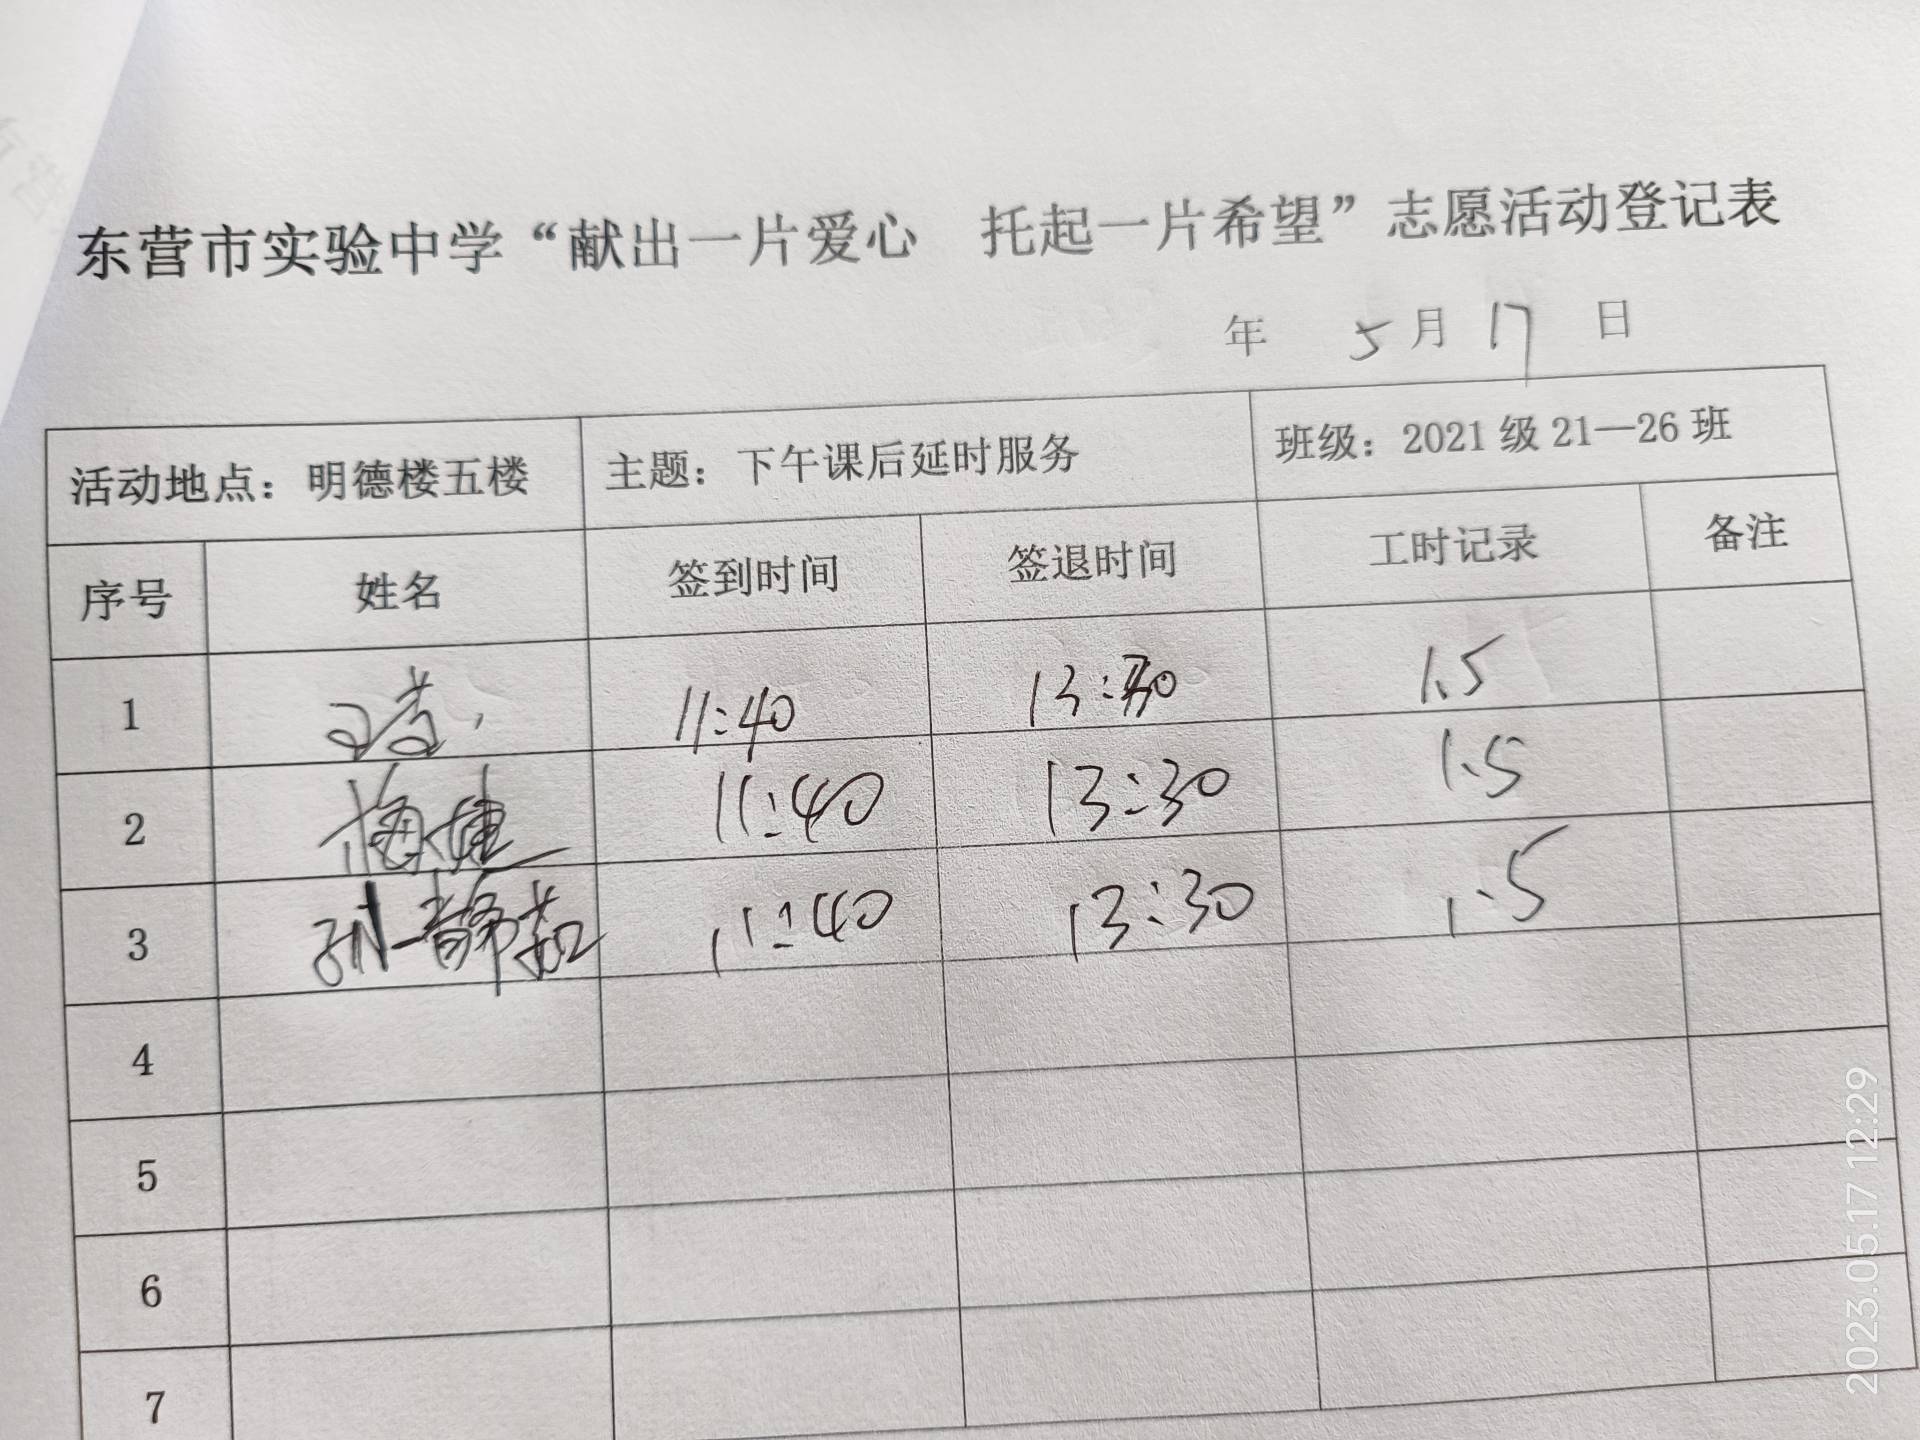 东营市实验中学“献出一片爱心 托起一片希望”志愿活动登记表
年 5月17 日
活动地点：明德楼五楼 主题：下午课后延时服务 班级：2021级21—26班
序号 姓名 签到时间 签退时间 工时记录 备注
1 11:40 13:30 1.5
2 11:40 13:30 1.5
3 孙静茹 11:40 13:30 1.5
4
5
6
7
2023.05.17 12:29